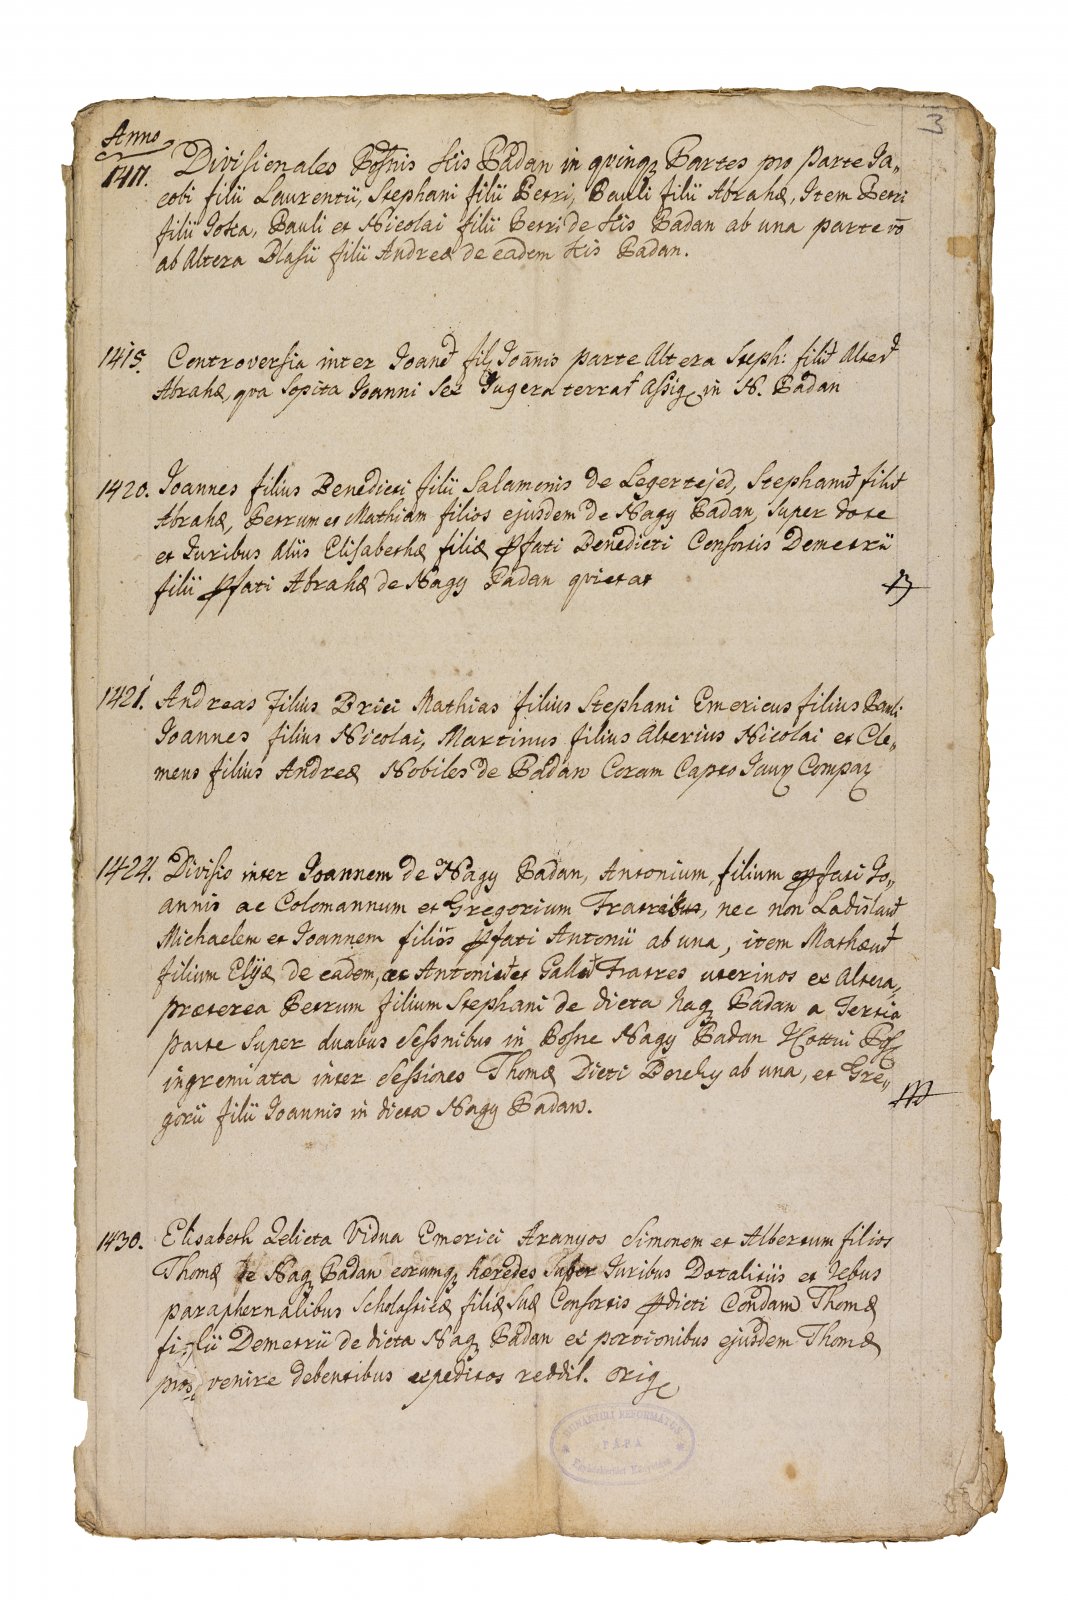 3
Anno
1411. Divisionales Possnis Kis Bádan in qvinq Partes pro parte Ja„
cobi filii Laurentii, Stephani filii Petri, Pauli filii Abrahæ, Item Petri
filii Joska, Pauli et Nicolai filii Petri de Kis Badan ab una parte
ab Altera Blasii filii Andreæ de eadem Kis Badan.
1415. Controversia inter Joanē fil Joānis parte Altera Steph: filiū Alteri
Abrahæ, qva Sopita Joanni Sex Jugera terrar Assig in N. Badan
1420. Joannes filius Benedicti filii Salamonis de Legertejed, Stephanū filiū
Abrahæ, Petrum et Mathiam filios ejusdem de Nagy Badan, Super dote
et Juribus aliis Elisabethæ filiæ pfati Benedicti Consortis Demetrii
filii pfati Abrahæ de Nagy Badan qvietat
1421. Andreas Filius Brici Mathias filius Stephani Emericus filius Pauli
Joannes filius Nicolai, Martinus filius Alterius Nicolai et Cle„
mens filius Andreæ Nobiles de Badan Coram Capto Jaur Compar
1424. Divisio inter Joannem de Nagy Badan, Antonium, filium pfati Jo„
annis ac Colomannum et Gregorium Fratribus, nec non Ladislaū
Michaelem et Joannem filios pfati Antonii ab una, item Mathæū
filium Elyæ de eadem, ac Antoniū et Gallū Fratres uterinos ex Altera,
præterea Petrum filium Stephani de dicta Nag Badan a Tertia
parte Super duabus Sessnibus in Possne Nagy Badan Hottui Poss
ingremiata inter Sessiones Thomæ Dicti Bereky ab una, et Gre„
gorii filii Joannis in dicta Nagy Badan.
1430. Elisabeth Relicta Vidua Emerici Aranyos Simonem et Albertum filios
Thomæ de Nag Badan eorumq hæredes Super Juribus Dotalitiis et rebus
paraphernalibus Scholasticæ filiæ Suæ Consortis pdicti Condam Thomæ
filii Demetrii de dicta Nag Badan et portionibus ejusdem Thomæ
venire debentibus expeditos reddit. orig
DUNÁNTÚLI REFORMÁTUS
PÁPA